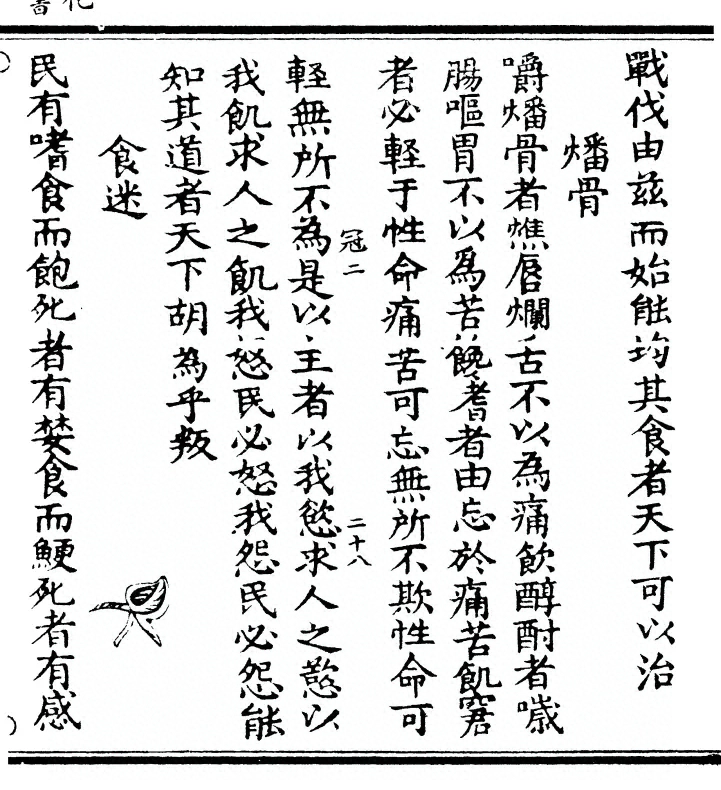 戰伐由茲而始能均其食者天下可以治
燔骨
嚼燔骨者燋唇爛舌不以為痛飲醇酎者噦
腸嘔胃不以爲苦饞嗜者由忘於痛苦飢窘
者必軽于性命痛苦可忘無所不欺性命可
冠二
二十八
軽無所不為是以主者以我慾求人之慾以
我飢求人之飢我怒民必怒我怨民必怨能
知其道者天下胡為乎叛
食迷
民有嗜食而飽死者有婪食而鯁死者有感